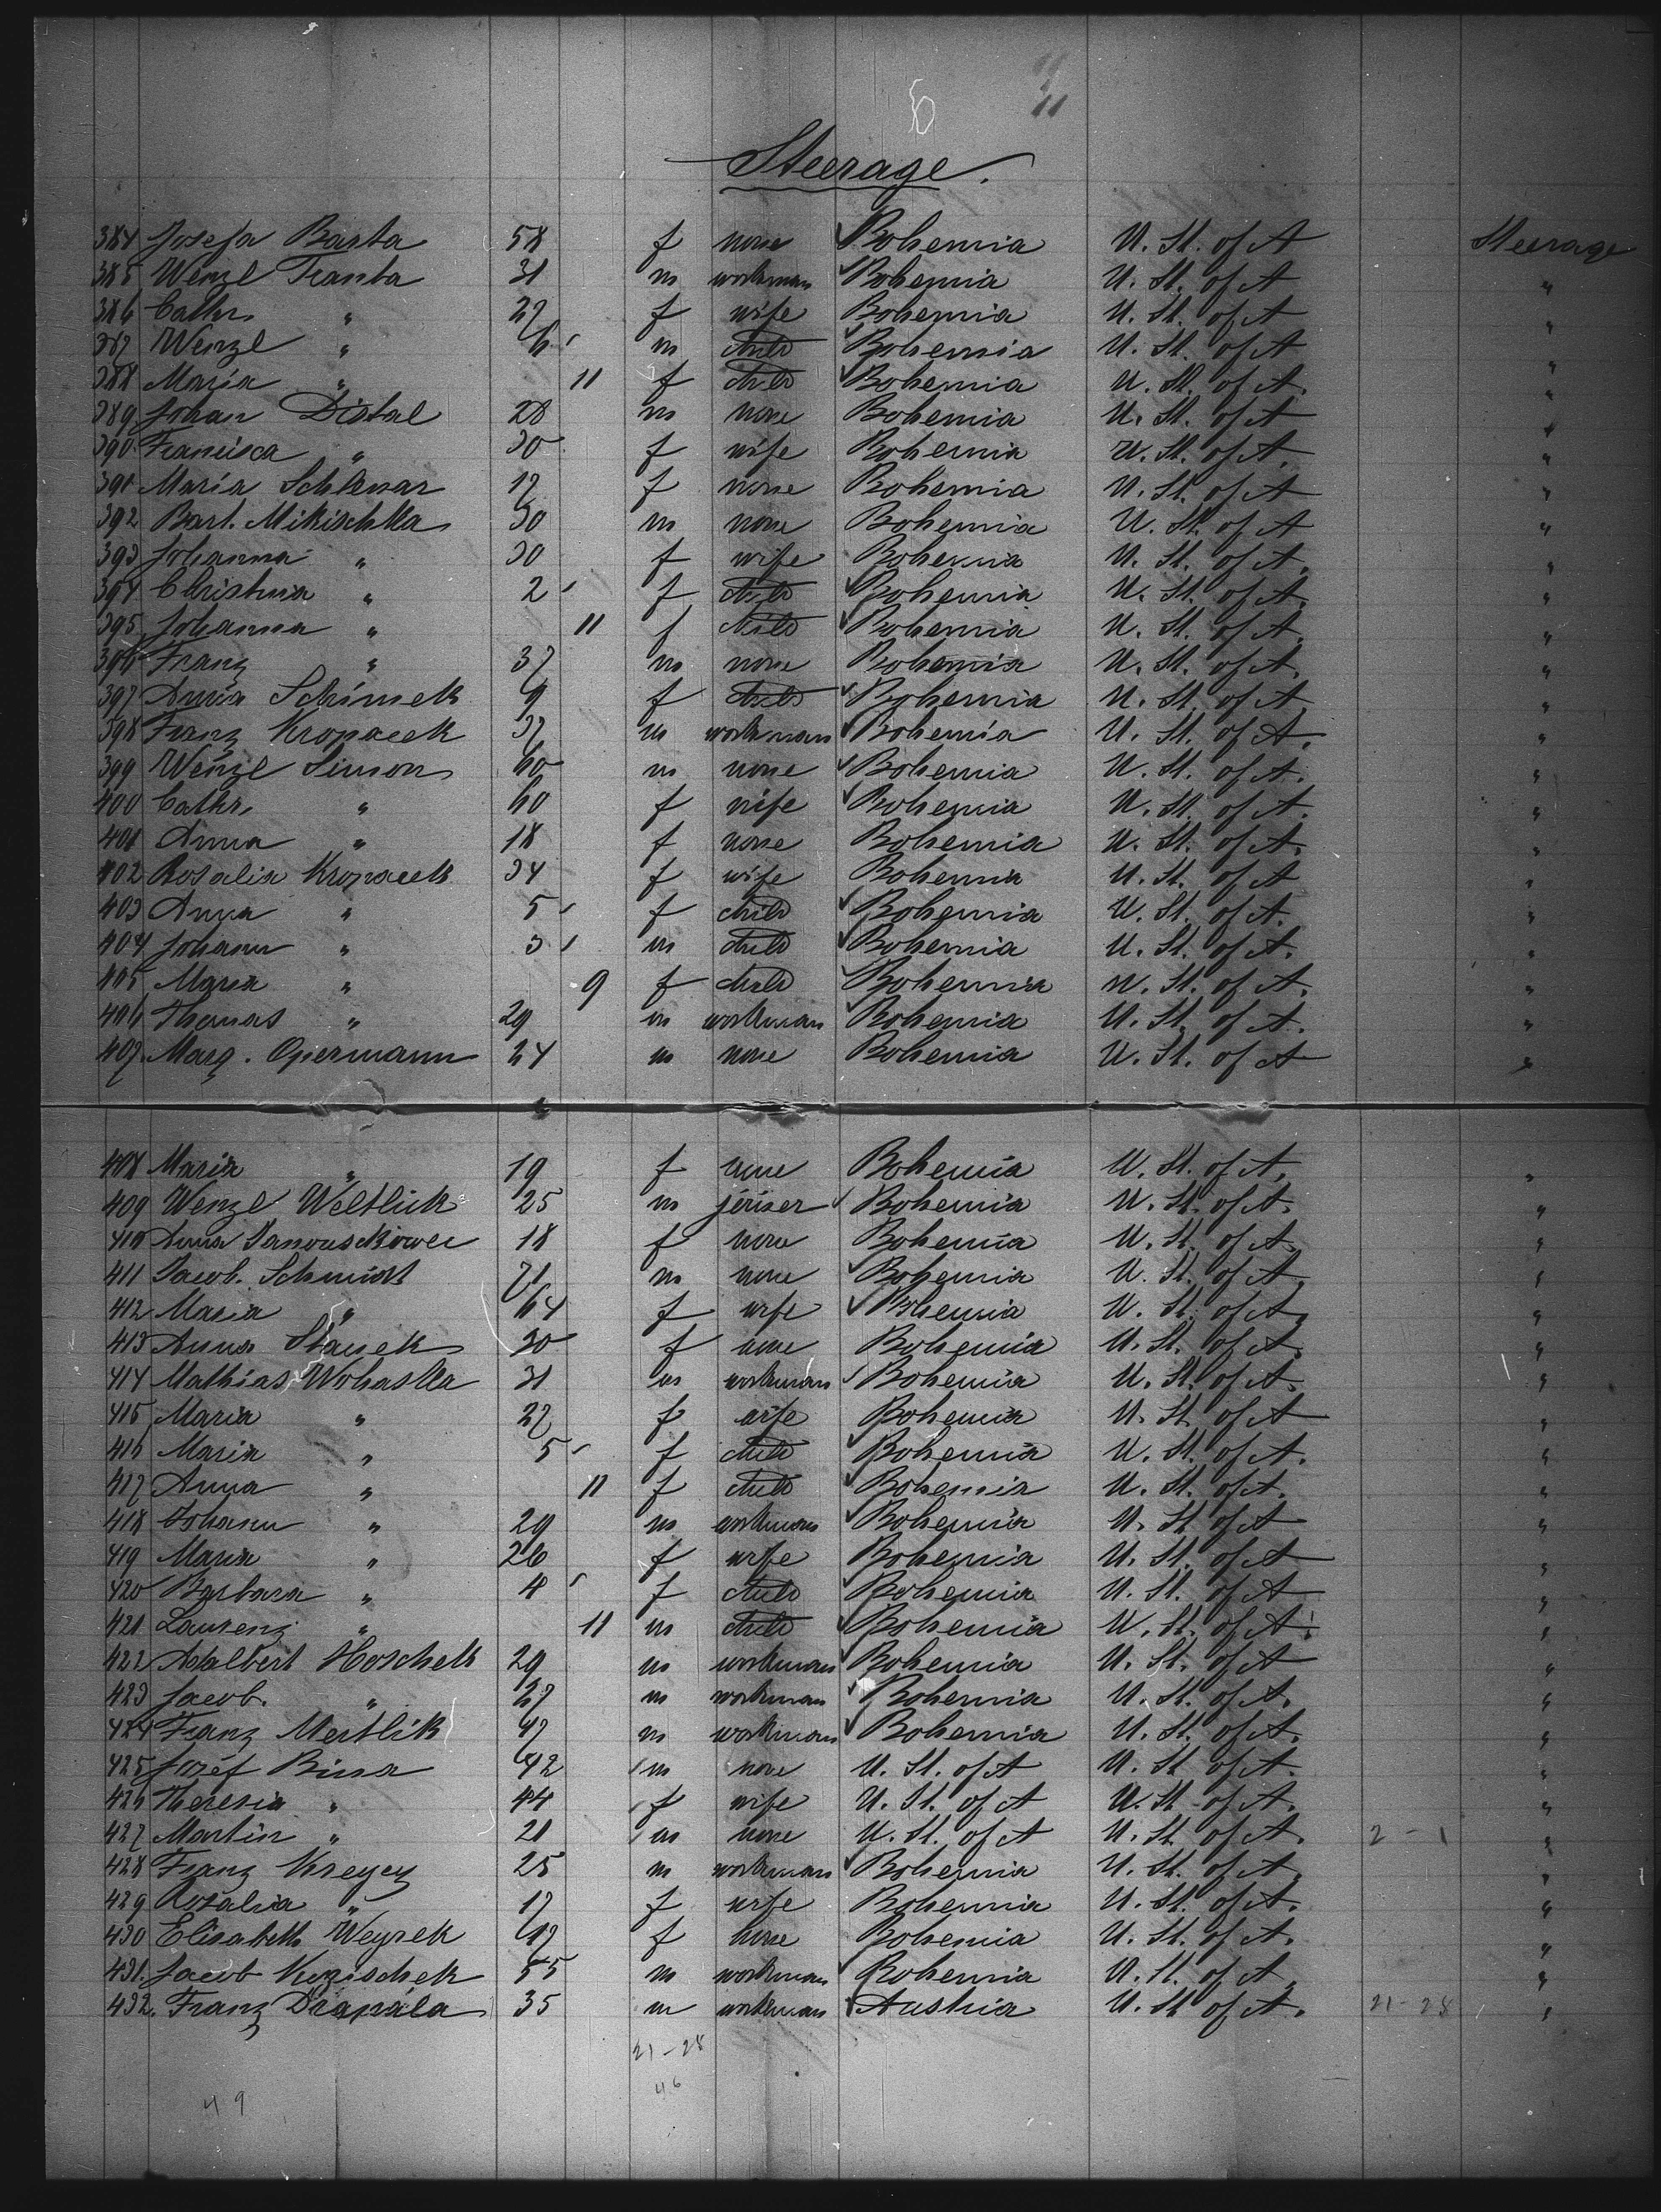 6
Steerage.
384 Josefa Barta 58 f none Bohemia U. St. of A Steerage
385 Wenzl Tranta 31 m workman Bohemia U. St. of A "
386 Cathr. " 27 f wife Bohemia U. St. of A "
387 Wenzl " 6 m child Bohemia U. St. of A "
388 Maria " 11 f child Bohemia U. St. of A. "
389 Johan Distal 28 m none Bohemia U. St. of A "
390 Francisca " 30 f wife Bohemia U. St. of A. "
391 Maria Schlenar 17 f none Bohemia U. St. of A "
392 Bart. Mikischka 30 m none Bohemia U. St. of A "
393 Johanna " 30 f wife Bohemia U. St. of A. "
394 Christina " 2 f child Bohemia U. St. of A. "
395 Johanna " 11 f child Bohemia U. St. of A. "
396 Franz " 37 m none Bohemia U. St. of A. "
397 Anna Schimek 9 f child Bohemia U. St. of A "
398 Franz Kropacek 37 m workman Bohemia U. St. of A. "
399 Wenzl Simon 60 m none Bohemia U. St. of A. "
400 Cathr. " 60 f wife Bohemia U. St. of A. "
401 Anna " 18 f none Bohemia U. St. of A. "
402 Rosalia Kropacek 34 f wife Bohemia U. St. of A "
403 Anna " 5 f child Bohemia U. St. of A. "
404 Johann " 3 m child Bohemia U. St. of A. "
405 Maria " 9 f child Bohemia U. St. of A. "
406 Thomas " 29 m workman Bohemia U. St. of A. "
407 Marg. Opermann 24 m none Bohemia U. St. of A "
408 Maria " 19 f none Bohemia U. St. of A. "
409 Wenzl Weltlick 25 m joiner Bohemia U. St. of A. "
410 Anna Janouschowec 18 f none Bohemia U. St. of A. "
411 Jacob. Schmidt 71 m none Bohemia U. St. of A. "
412 Maria " 64 f wife Bohemia U. St. of A. "
413 Anna Stanek 20 f none Bohemia U. St. of A. "
414 Mathias Wohaska 31 m workman Bohemia U. St. of A. "
415 Maria " 27 f wife Bohemia U. St. of A "
416 Maria " 5 f child Bohemia U. St. of A. "
417 Anna " 11 f child Bohemia U. St. of A. "
418 Johann " 29 m workman Bohemia U. St. of A "
419 Maria " 26 f wife Bohemia U. St. of A "
420 Barbara " 4 f child Bohemia U. St. of A "
421 Laurenz " 11 m child Bohemia U. St. of A. "
422 Adalbert Hoschek 29 m workman Bohemia U. St. of A "
423 Jacob. " 27 m workman Bohemia U. St. of A. "
424 Franz Mertlik 47 m workman Bohemia U. St. of A. "
425 Josef Bina 42 m none U. St. of A U. St. of A. "
426 Theresia " 44 f wife U. St. of A U. St. of A. "
427 Martin " 21 m none U. St. of A U. St. of A. 2 - 1 "
428 Franz Kreycy 25 m workman Bohemia U. St. of A. "
429 Rosalia " 17 f wife Bohemia U. St. of A. "
430 Elisabeth Weyrek 17 f none Bohemia U. St. of A. "
431. Jacob Kuzischek 55 m workman Bohemia U. St. of A. "
432. Franz Drapála 35 m workman Austria U. St. of A. 21 - 28 "
21 - 28
46
49